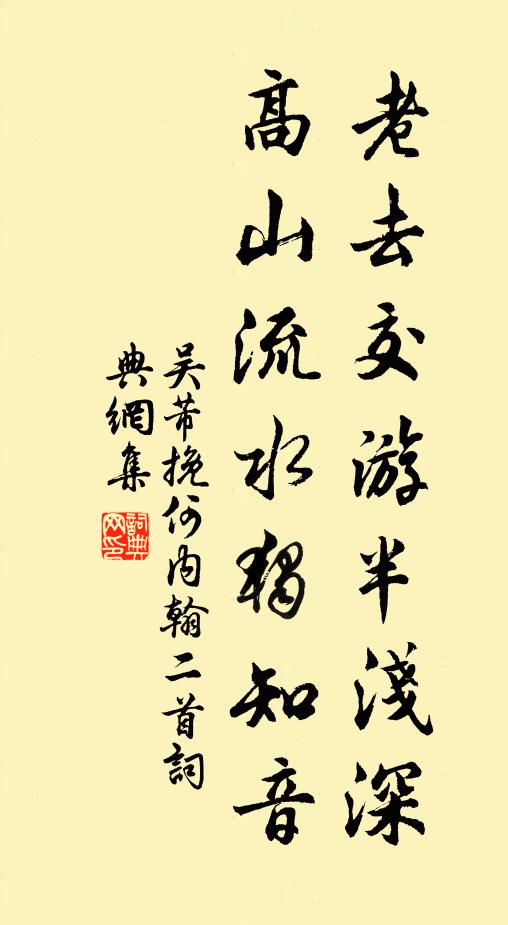 老去交游半淺深
高山流水獨知音
吴芾挽何内翰二首詞
典網集
詞典
网印